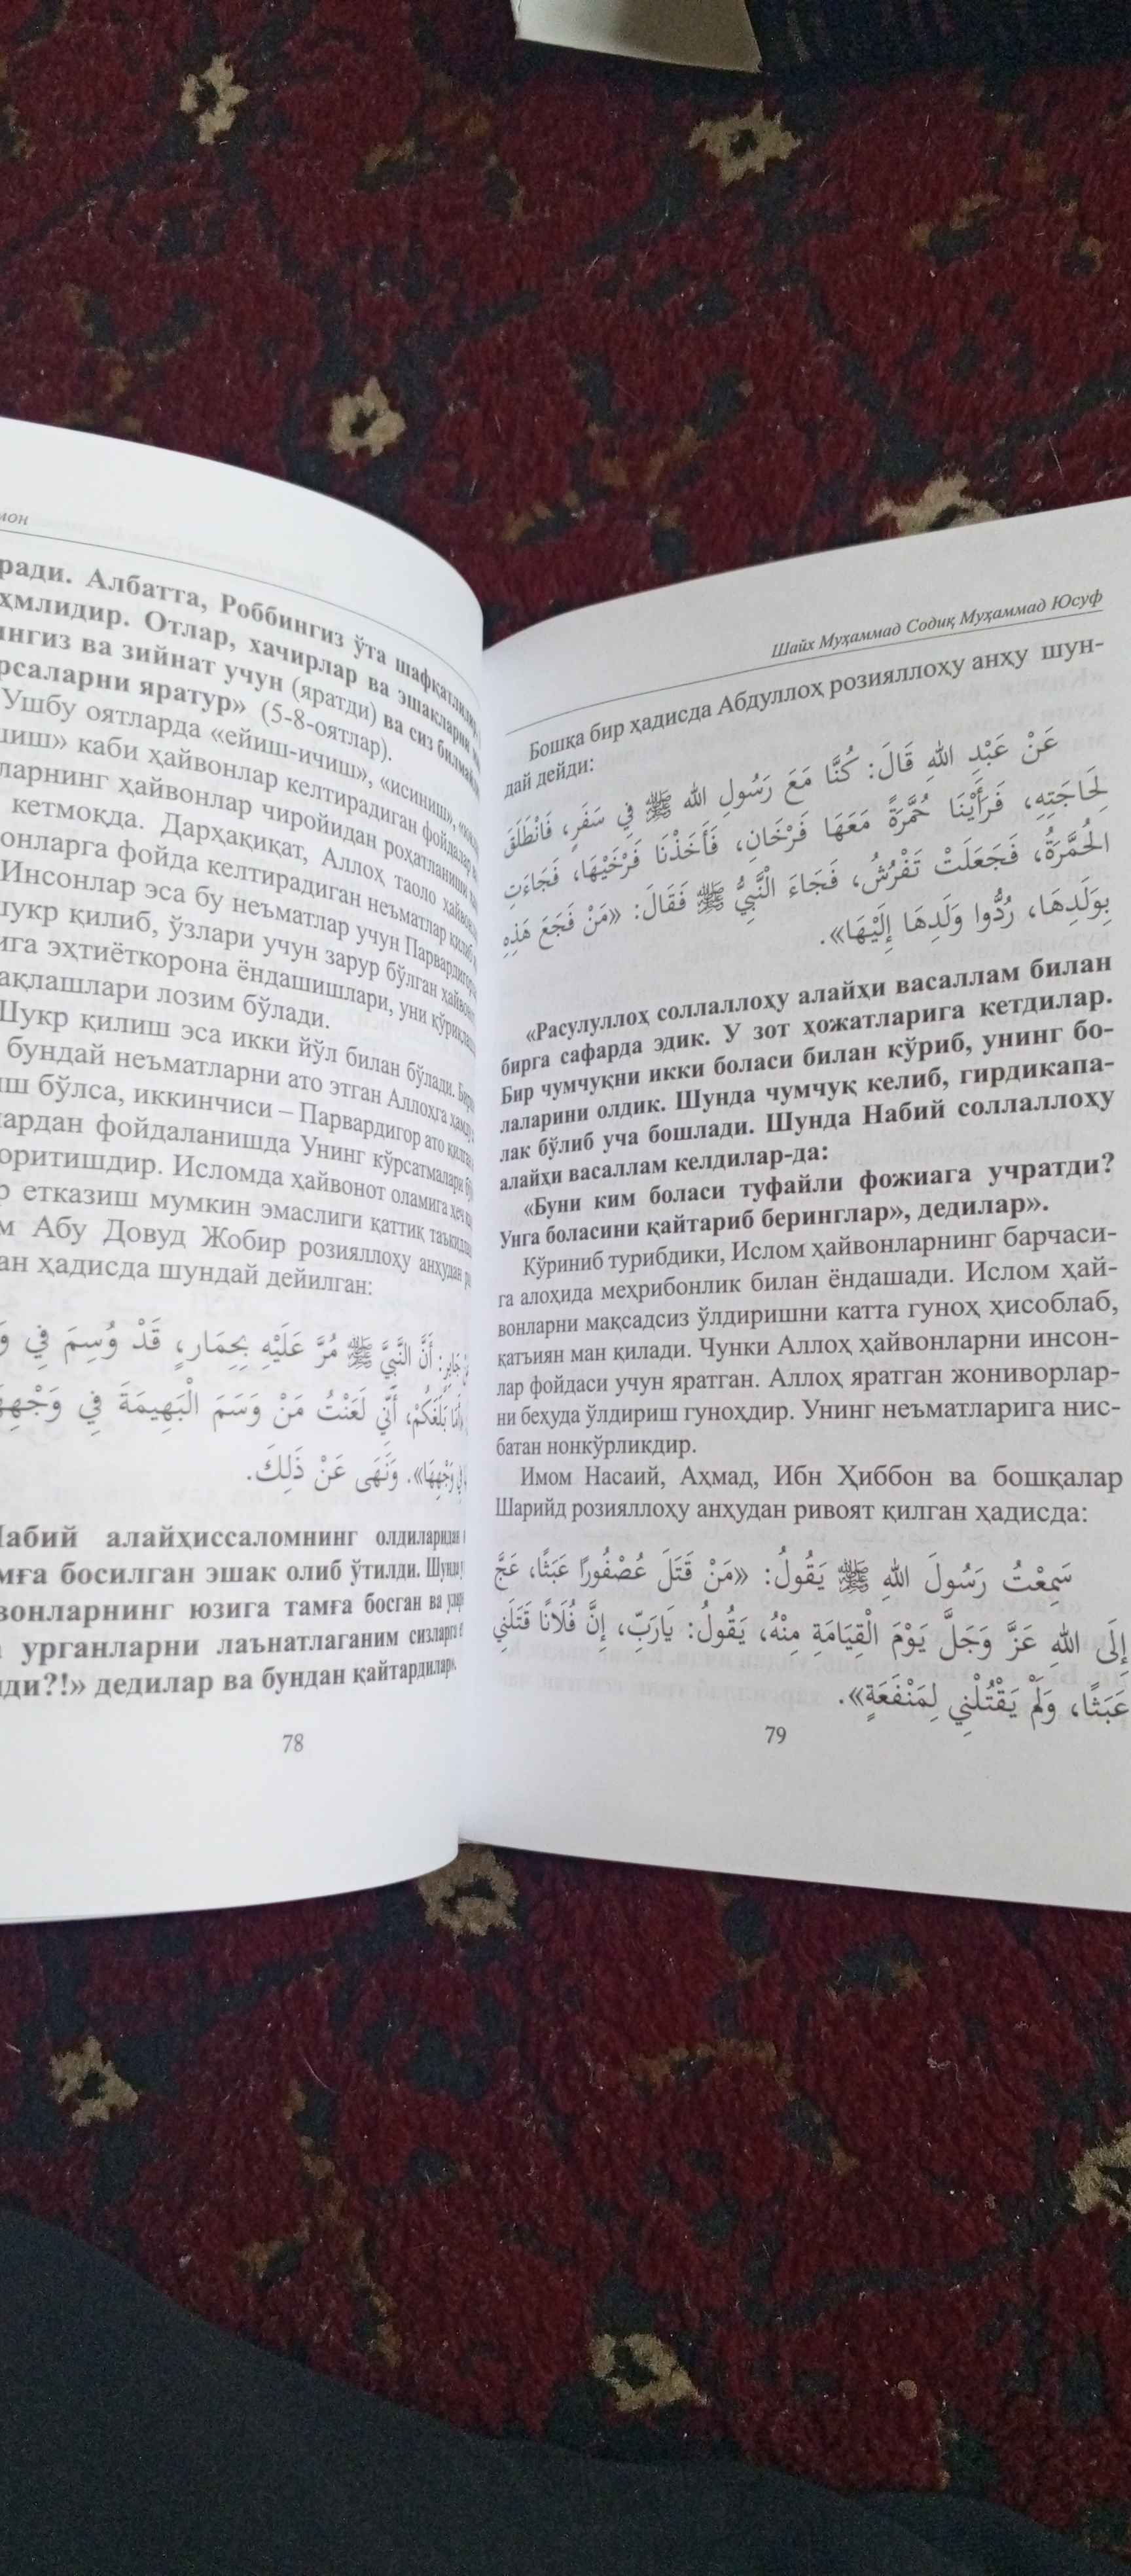 мон
ради. Албатта, Роббингиз ўта шафқатлидир,
ҳмлидир. Отлар, хачирлар ва эшакларни
ингиз ва зийнат учун (яратди) ва сиз билмайдиган
рсаларни яратур» (5-8-оятлар).
Ушбу оятларда «ейиш-ичиш», «исиниш»,
ниш» каби ҳайвонлар келтирадиган фойдалар
ларнинг ҳайвонлар чиройидан роҳатланиши
кетмоқда. Дарҳақиқат, Аллоҳ таоло
онларга фойда келтирадиган неъматлар қилиб
Инсонлар эса бу неъматлар учун
шукр қилиб, ўзлари учун зарур бўлган
ига эҳтиёткорона ёндашишлари, уни
ақлашлари лозим бўлади.
Шукр қилиш эса икки йўл билан бўлади.
бундай неъматларни ато этган Аллоҳга
иш бўлса, иккинчиси – Парвардигор ато
лардан фойдаланишда Унинг кўрсатмалари
оритишдир. Исломда ҳайвонот оламига
р етказиш мумкин эмаслиги қаттиқ
м Абу Довуд Жобир розияллоҳу анҳудан
ан ҳадисда шундай дейилган:
جَابِرٍ: أَنَّ النَّبِيَّ ﷺ مُرَّ عَلَيْهِ بِحِمَارٍ، قَدْ وُسِمَ فِي
أَمَا بَلَغَكُمْ، أَنِّي لَعَنْتُ مَنْ وَسَمَ الْبَهِيمَةَ فِي وَجْهِهَا
فِي وَجْهِهَا». وَنَهَى عَنْ ذَلِكَ.
Набий алайҳиссаломнинг олдиларидан
мға босилган эшак олиб ўтилди. Шунда
вонларнинг юзига тамға босган ва
урганларни лаънатлаганим сизларга
ди?!» дедилар ва бундан қайтардилар».
78
Шайх Муҳаммад Содиқ Муҳаммад Юсуф
Бошқа бир ҳадисда Абдуллоҳ розияллоҳу анҳу шун-
дай дейди:
عَنْ عَبْدِ اللهِ قَالَ: كُنَّا مَعَ رَسُولِ اللهِ ﷺ فِي سَفَرٍ، فَانْطَلَقَ
لِحَاجَتِهِ، فَرَأَيْنَا حُمَّرَةً مَعَهَا فَرْخَانِ، فَأَخَذْنَا فَرْخَيْهَا، فَجَاءَتِ
الْحُمَّرَةُ، فَجَعَلَتْ تَفْرُشُ، فَجَاءَ النَّبِيُّ ﷺ فَقَالَ: «مَنْ فَجَعَ هَذِهِ
بِوَلَدِهَا، رُدُّوا وَلَدِهَا إِلَيْهَا».
«Расулуллоҳ соллаллоҳу алайҳи васаллам билан
бирга сафарда эдик. У зот ҳожатларига кетдилар.
Бир чумчуқни икки боласи билан кўриб, унинг бо-
лаларини олдик. Шунда чумчуқ келиб, гирдикапа-
лак бўлиб уча бошлади. Шунда Набий соллаллоҳу
алайҳи васаллам келдилар-да:
«Буни ким боласи туфайли фожиага учратди?
Унга боласини қайтариб беринглар», дедилар».
Кўриниб турибдики, Ислом ҳайвонларнинг барчаси-
га алоҳида меҳрибонлик билан ёндашади. Ислом ҳай-
вонларни мақсадсиз ўлдиришни катта гуноҳ ҳисоблаб,
қатъиян ман қилади. Чунки Аллоҳ ҳайвонларни инсон-
лар фойдаси учун яратган. Аллоҳ яратган жониворлар-
ни беҳуда ўлдириш гуноҳдир. Унинг неъматларига нис-
батан нонкўрликдир.
Имом Насаий, Аҳмад, Ибн Ҳиббон ва бошқалар
Шарийд розияллоҳу анҳудан ривоят қилган ҳадисда:
سَمِعْتُ رَسُولَ اللهِ ﷺ يَقُولُ: «مَنْ قَتَلَ عُصْفُورًا عَبَثًا، عَجَّ
إِلَى اللهِ عَزَّ وَجَلَّ يَوْمَ الْقِيَامَةِ مِنْهُ، يَقُولُ: يَارَبِّ، إِنَّ فُلَانًا قَتَلَنِي
عَبَثًا، وَلَمْ يَقْتُلْنِي لِمَنْفَعَةٍ».
79